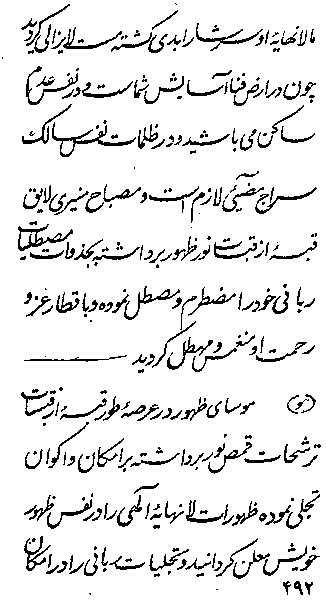 مالانهایهٔ او سرشار ابدی گشته مست لایزالی گردید
چون در ارض فنا آسایش شماست و در نفس عدم
ساکن می باشید و در ظلمات نفس سالک
سراج مضیئی لازم است و مصباح منیری لایق
قبسهٔ از قبسات نور ظهور برداشته بجذوات مصطلیات
ربانی خود را مضطرم و مصطل نموده و باقطار عز و
رحمت او منغمس و مهطل گردید
(هو) موسای ظهور در عرصهٔ طور قبسهٔ از قبسات
ترشحات قمص نور برداشته بر امکان و اکوان
تجلی نموده ظهورات لانهایهٔ الهی را در نفس ظهور
خویش معلن گردانید و تجلیات ربانی را در امکان
۴۹۲